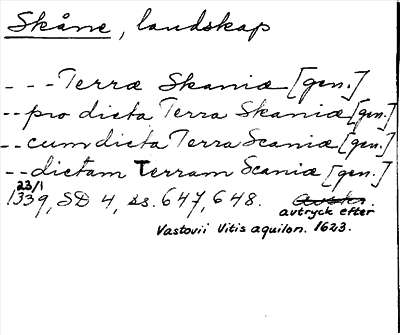 Skåne, landskap
- - - Terræ Skaniæ [gen.]
-- pro dicta Terra Skaniæ [gen.]
-- cum dicta Terra Scaniæ [gen.]
-- dictam Terram Scaniæ [gen.]
23/1
1339, SD 4, ss. 647, 648. Avskr.
avtryck efter
Vastovii Vitis aquilon. 1623.